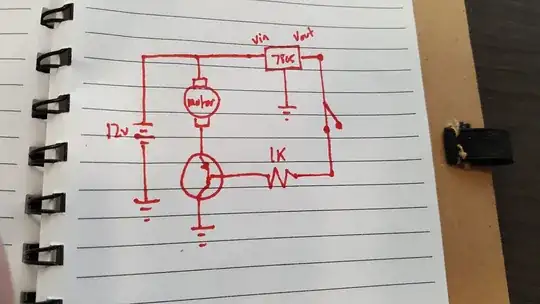 Vin Vout
7805
motor
12v
1K